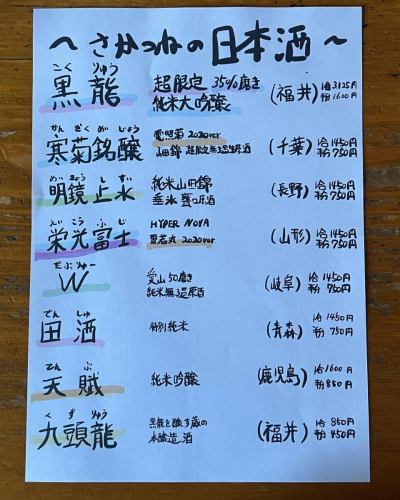 ～さかつねの日本酒～
こくりゅう
黒龍 超限定 35%磨き 純米大吟醸 (福井) 冶3125円 粉1600円
かんぎくめいじょう
寒菊銘醸 電照菊 2020ver 山田錦 超限定無濾過生原酒 (千葉) 冶1450円 粉750円
めいきょうしすい
明鏡止水 純米山田錦 垂氷 甕口原酒 (長野) 冶1450円 粉750円
えいこうふじ
栄光富士 HYPER NOVA 2020ver (山形) 冶1450円 粉750円
だぶりゅー
W 愛山50磨き 純米無濾過原酒 (岐阜) 冶1450円 粉750円
でんしゅ
田酒 特別純米 (青森) 冶1450円 粉750円
てんぶ
天賦 純米吟醸 (鹿児島) 冶1600円 粉850円
くずりゅう
九頭龍 黒龍を醸す蔵の 本醸造酒 (福井) 冶850円 粉450円